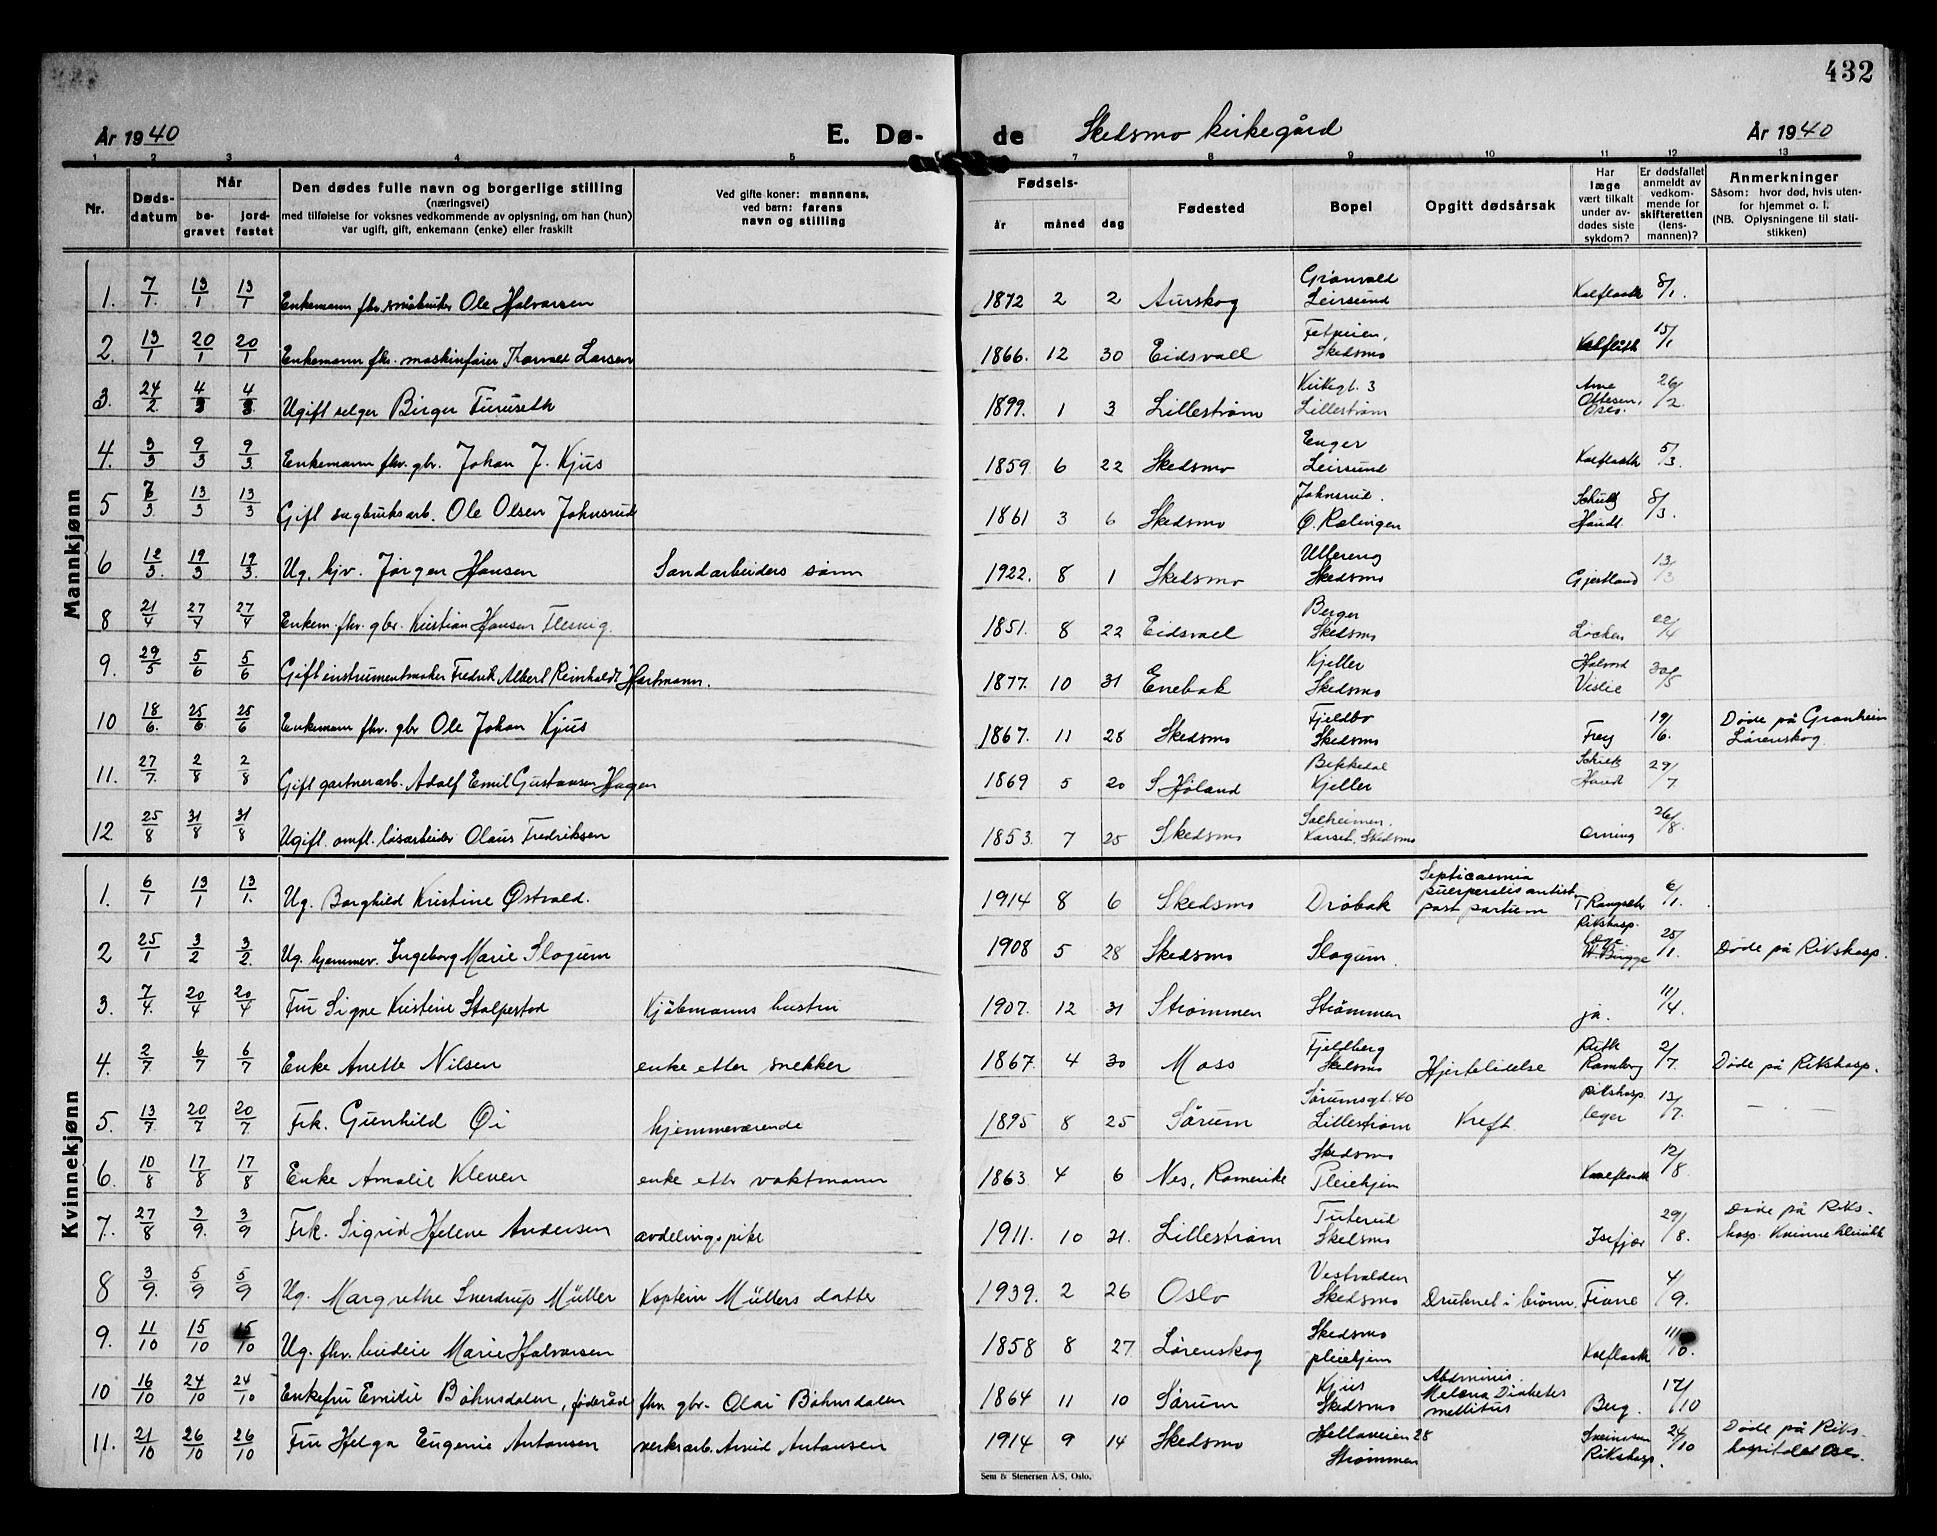 432
År 1940 E. Dø- de Skedsmo kirkegård År 1940
1 2 3 4 5 7 8 9 10 11 12 13
Nr.
Døds-
datum
Når
be-
gravet
jord-
festet
Den dødes fulle navn og borgerlige stilling
(næringsvei)
med tilføielse for voksnes vedkommende av oplysning, om han (hun)
var ugift, gift, enkemann (enke) eller fraskilt
Ved gifte koner: mannens,
ved børn: farens
navn og stilling
Fødsels-
år måned dag
Fødested
Bopel
Opgitt dødsårsak
Har
læge
vært tilkalt
under av-
dødes siste
sykdom?
Er dødsfallet
anmeldt av
vedkom-
mende for
skifteretten
(lens-
mannen)?
Anmerkninger
Såsom: hvor død, hvis uten-
for hjemmet o. l.
(NB. Oplysningene til stati-
stikken)
Mannkjønn
1. 7/1. 13/1 13/1 Enkemann fhv. småbruker Ole Halvorsen 1872 2 2 Aurskog Grönvold Leirsund Kalfloath 8/1.
2. 13/1 20/1 20/1 Enkemann fhv. maskinfører Torvald Larsen 1866. 12 30 Eidsvoll Fetveien, Skedsmo 15/1
3. 24/2. 4/3 4/3. Ugift selger Birger Furuseth 1899. 1 3 Lillestrøm Kirkegt. 3 Lillestrøm Arne Ottersen, Oslo. 26/2.
4. 3/3 9/3 9/3. Enkemann fhv. gbr. Johan J. Kjus 1859. 6 22 Skedsmo Enger Leirsund Kalfloath 5/3.
5 7/3. 13/3 13/3 Gift sagbruksarb. Ole Olsen Johnsrud 1861 3 6 Skedsmo Johnsrud. Ø. Rælingen Schultz Haudt. 8/3.
6 12/3. 19/3 19/3. Ug. hjv. Jørgen Hansen Sandarbeiders sønn 1922. 8 1 Skedsmo Ullereng Skedsmo Gjestland 13/3
8 21/4 27/4 27/4 Enkem. fhv. gbr. Kristian Hansen Flesvig. 1851. 8 22 Eidsvoll Berger Skedsmo Løcken 22/4
9. 29/5 5/6 5/6 Gift instrumentmaker Fredrik Albert Reinholdt Hartmann. 1877. 10 31 Enebak Kjeller Skedsmo Halvord Vislie 30/5
10 18/6. 25/6 25/6 Enkemann fhv. gbr Ole Johan Kjus 1867. 11 28 Skedsmo Fjeldbo Skedsmo Frey 19/6. Døde på Granheim Lørenskog
11. 27/7. 2/8 2/8 Gift gartnerarb. Adolf Emil Gustavsen Hagen 1869 5 20 S. Høland Bekkedal Kjeller 29/7
12 25/8 31/8 31/8 Ugift. omfl. løsarbeider Olaus Fredriksen 1853. 7 25 Skedsmo Solheimen. Skedsmo Orning 26/8.
Kvinnekjønn
1. 6/1 13/1 13/1. Ug. Borghild Kristine Østvold. 1914 8 6 Skedsmo Drøbak Septicaemia puerperalis post partum T Rangseth 6/1.
2 25/1 3/2 3/2. Ug. hjemmev. Ingeborg Marie Slogum 1908 5 28 Skedsmo Slogum. Rikshosp. læge 25/1. Døde på Rikshosp.
3. 7/4. 20/4 20/4 Fru Signe Kristine Stolpestad Kjöbmanns hustru 1907. 12 31 Strømmen Strømmen ja. 11/4.
4. 2/7 6/7 6/7 Enke Anette Nilsen enke etter snekker 1867. 4 30 Moss Fjeldberg Skedsmo Hjertelidelse Ruth Ramberg 2/7. Døde på Rikshosp.
5. 13/7. 20/7 20/7. Frk. Gunhild Øi hjemmeværende 1895 8 25 Sørum Sørumsgt. 40 Lillestrøm Kreft. Rikshosp. leger 13/7. — —
6. 10/8 17/8 17/8 Enke Amalie Kleven enke ettr vaktmann 1863. 4 6 Nes, Romerike Skedsmo Pleiehjem Kalfloath 12/8
7. 27/8 3/9. 3/9 Frk. Sigrid Helene Andersen avdelingspike 1911. 10 21. Lillestrøm Tuterud Skedsmo Isefjær 29/8. Døde på Riks- hosp. Kvinneklinikk
8 3/9. 5/9 5/9 Ug. Margrethe Sverdrup Müller Kaptein Müllers datter 1939. 2 26 Oslo Vestvolden Skedsmo Druknet i brønn. Fiane 4/9.
9. 11/10 15/10 15/10 Ug. fhv. budeie Marie Halvorsen 1858 8 27 Lørenskog Skedsmo pleiehjem Kalfloath 11/10.
10 16/10 24/10 24/10 Enkefru Emilie Böhnsdalen, føderåd fhv. gbr. Olai Böhnsdalen 1864 11 10 Sørum Kjus Skedsmo Melæna Diabetes mellitus Berg. 17/10
11. 21/10 26/10 26/10 Fru Helga Eugenie Antonsen verksarb. Arvid Antonsen 1914 9 14 Skedsmo Hellaveien 28 Strømmen Rikshosp. 24/10 Døde på Riks- hospitalet Oslo.
Sem & Stenersen A/S, Oslo.